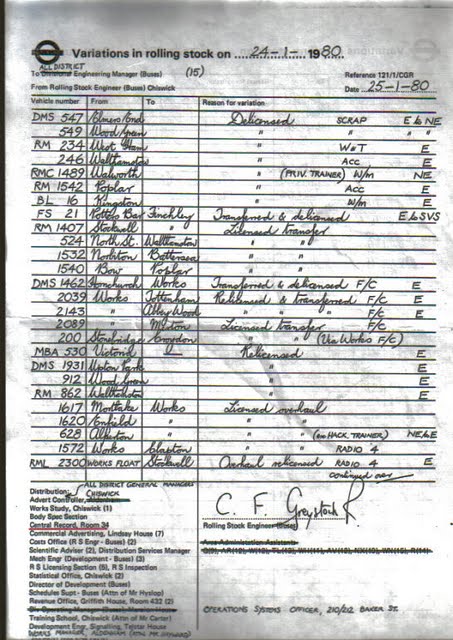 Variations in rolling stock on 24-1- 1980
ALL DISTRICT
To Divisional Engineering Manager (Buses) (15)
Reference 121/1/CGR
From Rolling Stock Engineer (Buses) Chiswick
Date 25-1-80
Vehicle number From To Reason for variation
DMS 547 Elmers End Delicensed SCRAP E to NE
549 Wood Green " " "
RM 234 West Ham " W&T E
246 Walthamstow " Acc E
RMC 1489 Walworth " (PRIV. TRAINER) W/m NE
RM 1542 Poplar " Acc E
BL 16 Kingston " W/m E
FS 21 Potters Bar Finchley Transferred & delicensed E to SVS
RM 1407 Stockwell " Licensed transfer
524 North St. Walthamstow " "
1532 Norbiton Battersea " "
1540 Bow Poplar " "
DMS 1462 Hornchurch Works Transferred & delicensed F/C E
2039 Works Tottenham Relicensed & transferred F/C E
2143 " Abbey Wood " " F/C E
2089 " Merton Licensed transfer F/C
200 Stonebridge Croydon " " (Via Works F/C)
MBA 530 Victoria Relicensed E
DMS 1931 Upton Park " E
912 Wood Green " E
RM 862 Walthamstow " E
1617 Mortlake Works Licensed overhaul
1620 Enfield " " "
628 Alperton " " " (ex HACK. TRAINER) NE to E
1572 Works Clapton " " RADIO 4
RML 2300 WORKS FLOAT Stockwell Overhaul relicensed RADIO 4 E
continued over
ALL DISTRICT GENERAL MANAGERS
Distribution: CHISWICK
Advert Controller,
Works Study, Chiswick (1)
Body Spec Section
Central Record, Room 34
Commercial Advertising, Lindsay House (7)
Costs Office (R S Engr - Buses) (2)
Scientific Adviser (2), Distribution Services Manager
Mech Engr (Development - Buses) (3)
R S Licensing Section (5), R S Inspection
Statistical Office, Chiswick (2)
Director of Development (Buses)
Schedules Supt - Buses (Attn of Mr Hyslop)
Revenue Office, Griffith House, Room 432 (2)
Div Operating Manager (Buses)
Training School, Chiswick (Attn of Mr Carter)
Development Engr, Signalling, Telstar House
WORKS MANAGER, ALDENHAM (ATTN MR
C. F. Greystock
Rolling Stock Engineer
Area Administration Assistants
OPERATIONS SYSTEMS OFFICER, 210/212 BAKER ST.